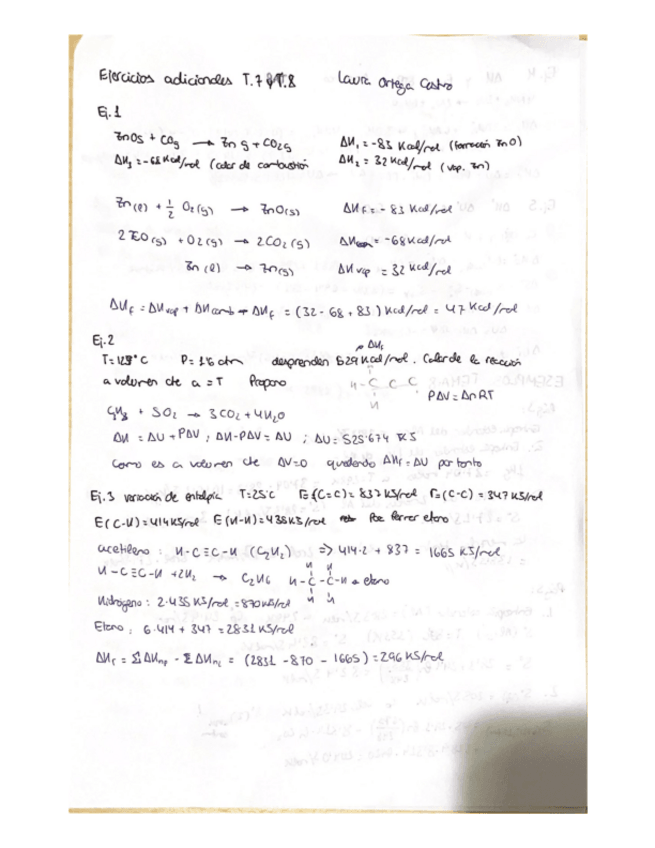 Ejercicios adicionales T.7 y T.8 Laura Ortega Castro
Ej.1
ZnOs + COg → Zn g + CO2g ΔH1 = -83 Kcal/mol (formación ZnO)
ΔH3 = -68 Kcal/mol (calor de combustión ΔH2 = 32 Kcal/mol (vap. Zn)
Zn(l) + 1/2 O2(g) → ZnO(s) ΔHf = - 83 Kcal/mol
O(g) + O2(g) → 2CO2(g) = -68 Kcal/mol
Zn(l) → Zn(g) ΔHvap = 32 Kcal/mol
ΔHf = ΔHvap + ΔHcomb + ΔHf = (32 - 68 + 83) Kcal/mol = 47 Kcal/mol
Ej.2
ΔHf
T= °C P= atm desprenden 529 Kcal/mol. Calor de la reacción
a volumen cte a = T Propano H - C C C
H
PΔV = ΔnRT
C3H8 + 5O2 → 3CO2 + 4H2O
ΔH = ΔU + PΔV ; ΔH-PΔV = ΔU ; ΔU = 525'674 KJ
Como es a volumen cte ΔV=0 quedando ΔHf = ΔU por tanto
Ej.3 variación de entalpía T=25°C E(C≡C) = 837 KJ/mol E(C-C) = 347 KJ/mol
E(C-H) = 414 KJ/mol E(H-H) = 435 KJ/mol Por formar etano
acetileno : H-C≡C-H (C2H2) => 414·2 + 837 = 1665 KJ/mol
H H
H-C≡C-H +2H2 → C2H6 H-C-C-H = etano
H H
Hidrógeno : 2·435 KJ/mol = 870 KJ/mol
Etano : 6·414 + 347 = 2831 KJ/mol
ΔHr = ΣΔHnp - ΣΔHnr = (2831 - 870 - 1665) = 296 KJ/mol